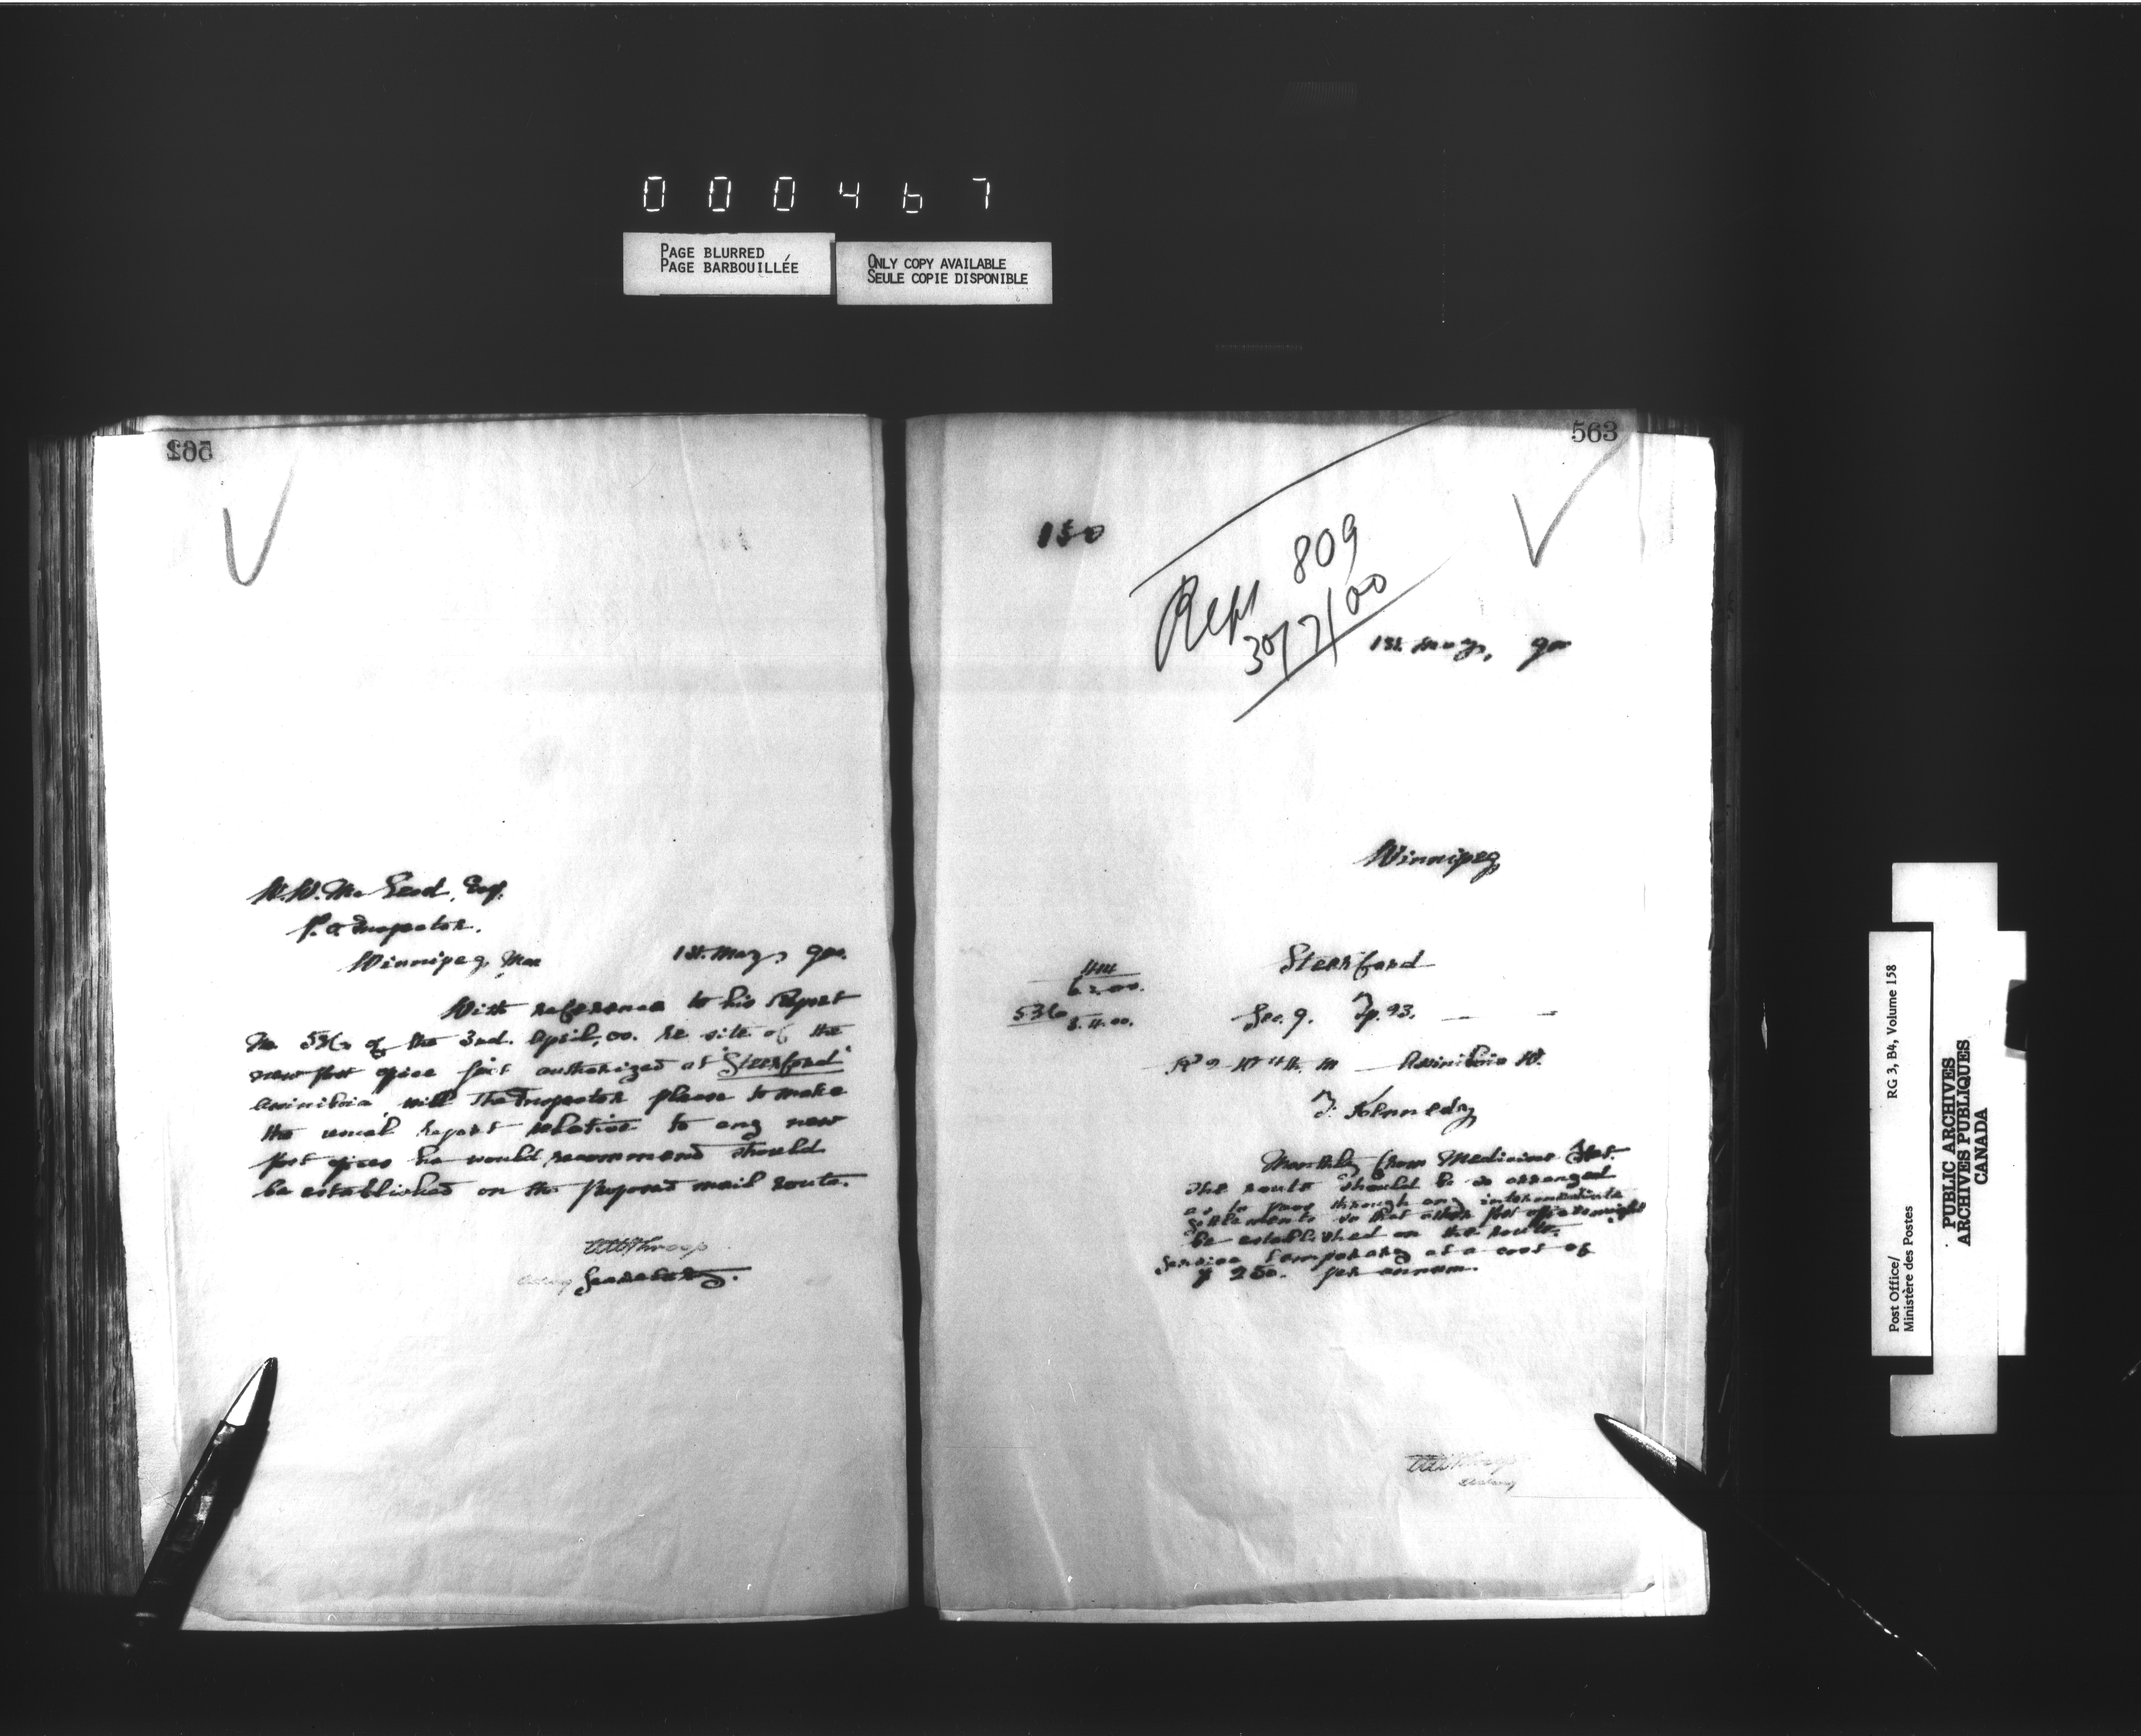 000467
PAGE BLURRED
PAGE BARBOUILLÉE
ONLY COPY AVAILABLE
SEULE COPIE DISPONIBLE
562
W. W. McLeod, Esq.
P.O Inspector.
Winnipeg, Man 1st. May, 900.
With reference to his Report
No. 536 of the 3rd. April, 00. re site of the
new post office just authorized at "Steerford"
Assiniboia, will The Inspector please to make
the usual report relative to any new
post offices he would recommend should
be established on the proposed mail route.
Secretary.
563
150
Rept 809
30/7/00
1st. May, 900
Winnipeg
Steerford
444
6.2.00.
536
3.4.00.
Sec. 9. Tp. 93.
Assiniboia W.
T. Kennedy
Monthly from Medicine Hat.
The route should be so arranged
as to pass through any intermediate
settlements so that other post offices might
be established on the route.
Service temporary at a cost of
$ 250. per annum.
Post Office/
Ministère des Postes
RG 3, B4, Volume 158
PUBLIC ARCHIVES
ARCHIVES PUBLIQUES
CANADA